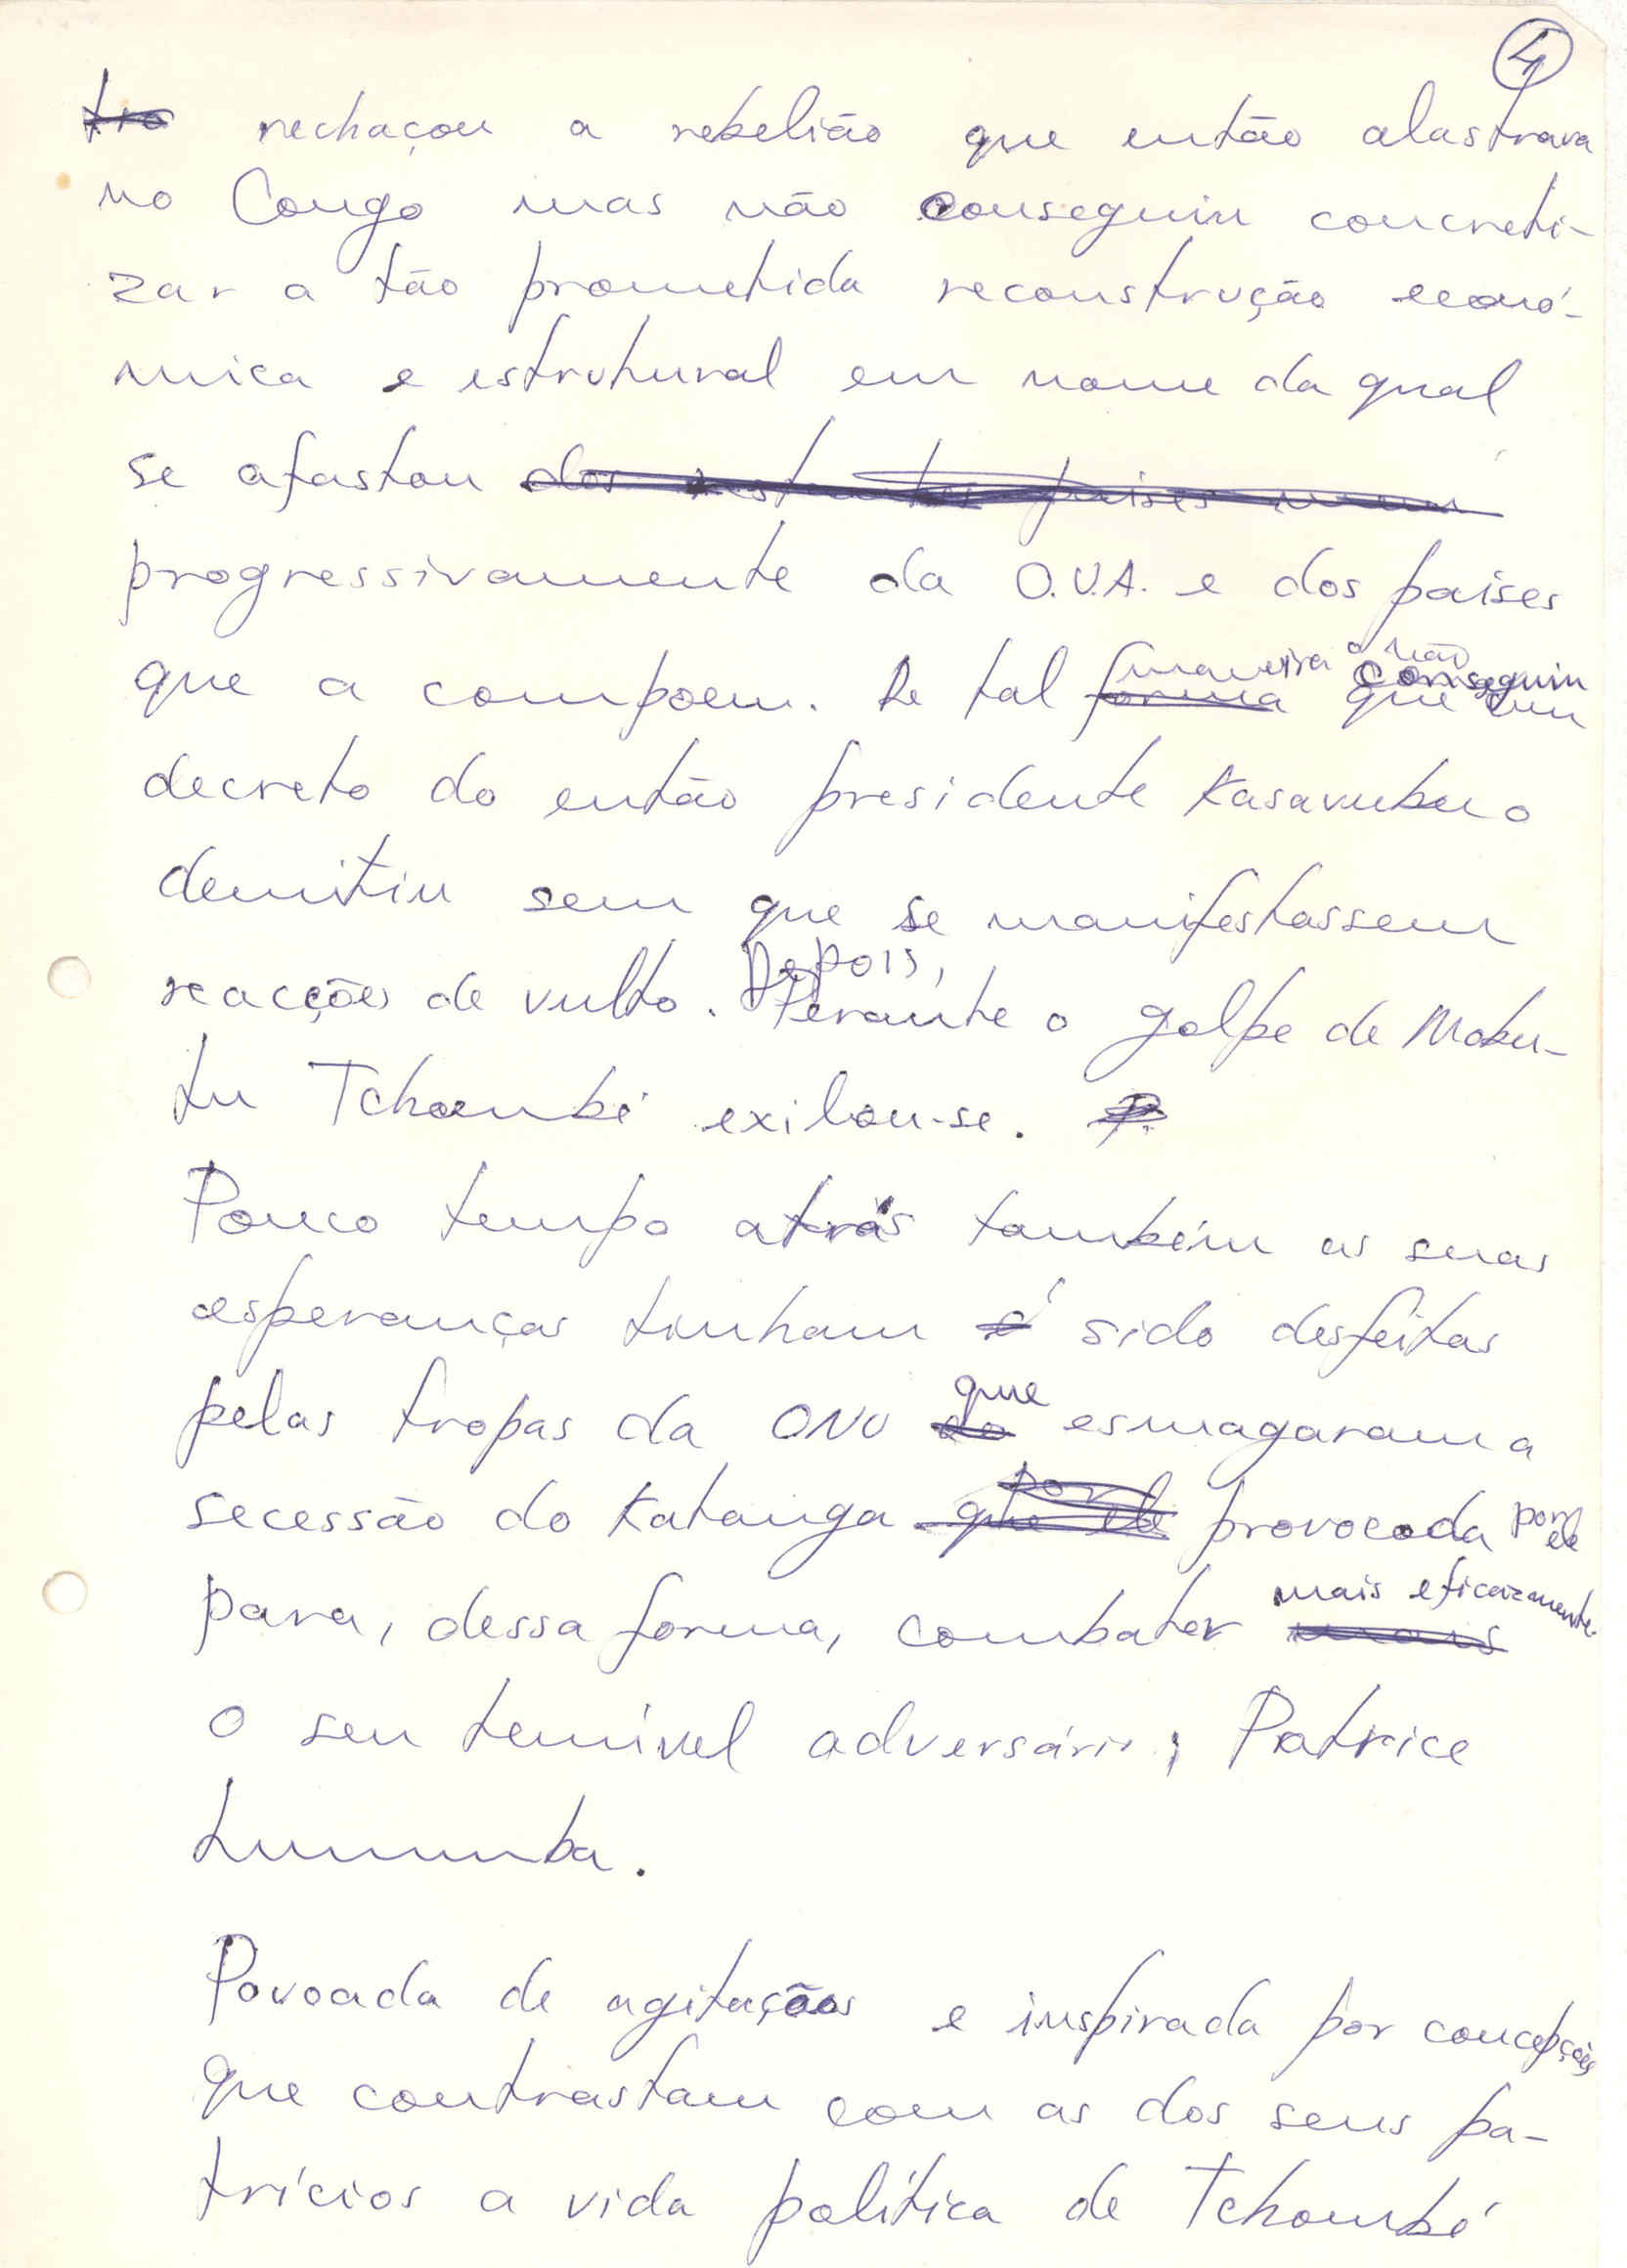 4
tro rechaçou a rebelião que então alastrava
no Congo mas não conseguiu concreti-
zar a tão prometida reconstrução econó-
mica e estrutural em nome da qual
se afastou dos restantes países
progressivamente da O.U.A. e dos países
que a compoem. De tal forma maneira o não conseguiu que um
decreto do então presidente Kasavubu o
demitiu sem que se manifestassem
reacções de vulto. Depois, Perante o golpe de Mobu-
tu Tchombé exilou-se. P.
Pouco tempo atrás também as suas
esperanças tinham sido desfeitas
pelas tropas da ONU do que esmagaram a
secessão do Katanga que ele por provocada por ele
para, dessa forma, combater mais mais eficazmente
o seu temível adversário, Patrice
Lumumba.
Povoada de agitações e inspirada por concepções
que contrastam com as dos seus pa-
trícios a vida política de Tchombé